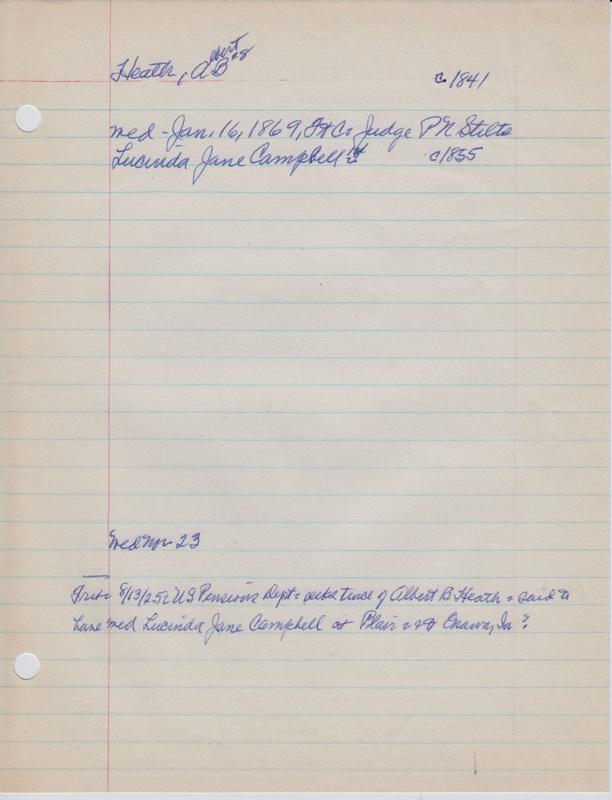 Heath, Albert B 28 c 1841
med - Jan. 16, 1869, Ft C = Judge P N Stilts
Lucinda Jane Campbell 14 c1855
Med No 23
Trib = 8/13/25 = US Pensions Dept = asks trace of Albert B Heath = said to
have med Lucinda Jane Campbell at Blair = or Onawa, Ia?